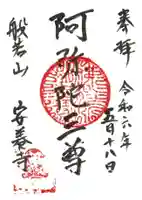 奉拝
令和六年
五月十八日
阿弥陀三尊
般若山
安養寺